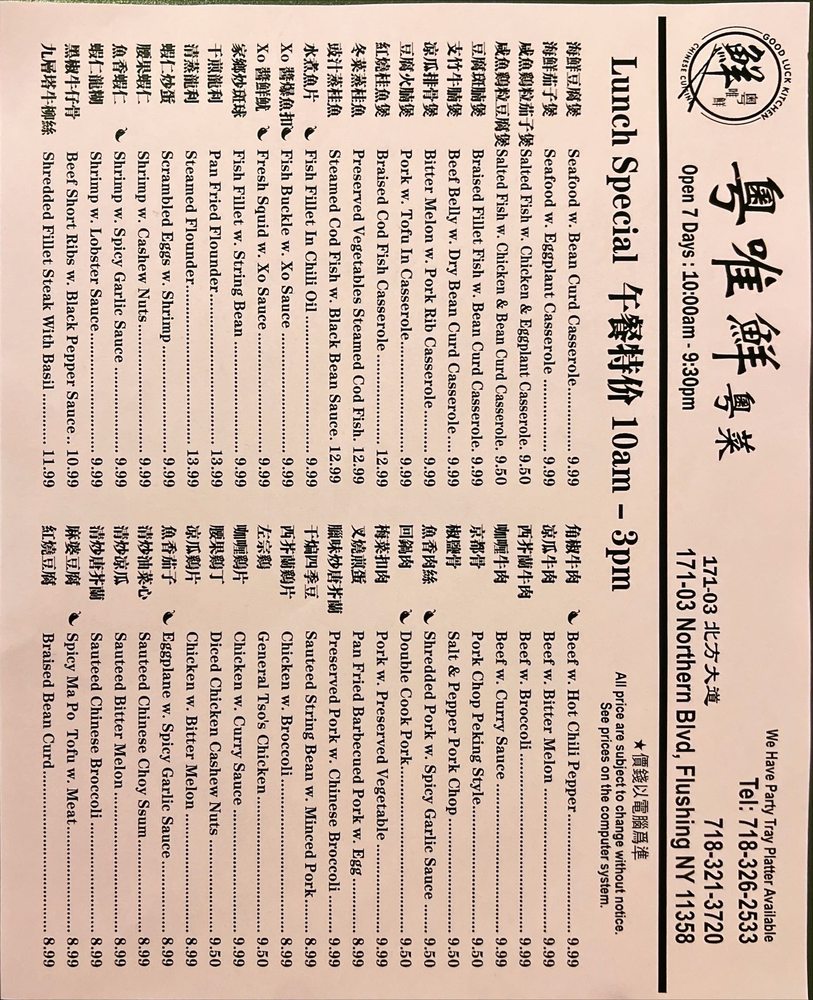 GOOD LUCK KITCHEN
鮮
粵唯鮮
CHINESE CUISINE
粵唯鮮 粵菜
Open 7 Days : 10:00am - 9:30pm
We Have Party Tray Platter Available
Tel: 718-326-2533
718-321-3720
171-03 北方大道
171-03 Northern Blvd, Flushing NY 11358
Lunch Special 午餐特价 10am – 3pm
★價錢以電腦爲準
All price are subject to change without notice.
See prices on the computer system.
海鮮豆腐煲 Seafood w. Bean Curd Casserole 9.99
海鮮茄子煲 Seafood w. Eggplant Casserole 9.99
咸魚鷄粒茄子煲 Salted Fish w. Chicken & Eggplant Casserole. 9.50
咸魚鷄粒豆腐煲 Salted Fish w. Chicken & Bean Curd Casserole. 9.50
豆腐斑腩煲 Braised Fillet Fish w. Bean Curd Casserole. 9.99
支竹牛腩煲 Beef Belly w. Dry Bean Curd Casserole 9.99
凉瓜排骨煲 Bitter Melon w. Pork Rib Casserole 9.99
豆腐火腩煲 Pork w. Tofu In Casserole 9.99
紅燒桂魚煲 Braised Cod Fish Casserole 12.99
冬菜蒸桂魚 Preserved Vegetables Steamed Cod Fish. 12.99
豉汁蒸桂魚 Steamed Cod Fish w. Black Bean Sauce. 12.99
水煮魚片 Fish Fillet In Chili Oil 9.99
Xo 醬爆魚扣 Fish Buckle w. Xo Sauce 9.99
Xo 醬鮮魷 Fresh Squid w. Xo Sauce 9.99
家鄉炒斑球 Fish Fillet w. String Bean 9.99
干煎龍利 Pan Fried Flounder 13.99
清蒸龍利 Steamed Flounder 13.99
蝦仁炒蛋 Scrambled Eggs w. Shrimp 9.99
腰果蝦仁 Shrimp w. Cashew Nuts 9.99
魚香蝦仁 Shrimp w. Spicy Garlic Sauce 9.99
蝦仁龍糊 Shrimp w. Lobster Sauce 9.99
黑椒牛仔骨 Beef Short Ribs w. Black Pepper Sauce.. 10.99
九層塔牛柳絲 Shredded Fillet Steak With Basil 11.99
角椒牛肉 Beef w. Hot Chili Pepper 9.99
凉瓜牛肉 Beef w. Bitter Melon 9.99
西芥蘭牛肉 Beef w. Broccoli 9.99
咖喱牛肉 Beef w. Curry Sauce 9.99
京都骨 Pork Chop Peking Style 9.99
椒鹽骨 Salt & Pepper Pork Chop 9.50
魚香肉絲 Shredded Pork w. Spicy Garlic Sauce 9.50
回鍋肉 Double Cook Pork 9.50
梅菜扣肉 Pork w. Preserved Vegetable 9.99
叉燒煎蛋 Pan Fried Barbecued Pork w. Egg 8.99
臘味炒唐芥蘭 Preserved Pork w. Chinese Broccoli 9.99
干煸四季豆 Sauteed String Bean w. Minced Pork 8.99
西芥蘭鷄片 Chicken w. Broccoli 8.99
左宗鷄 General Tso's Chicken 9.50
咖喱鷄片 Chicken w. Curry Sauce 9.99
腰果鷄丁 Diced Chicken Cashew Nuts 9.50
凉瓜鷄片 Chicken w. Bitter Melon 8.99
魚香茄子 Eggplane w. Spicy Garlic Sauce 8.99
清炒油菜心 Sauteed Chinese Choy Ssum 8.99
清炒凉瓜 Sauteed Bitter Melon 8.99
清炒唐芥蘭 Sauteed Chinese Broccoli 8.99
麻婆豆腐 Spicy Ma Po Tofu w. Meat 8.99
紅燒豆腐 Braised Bean Curd 8.99